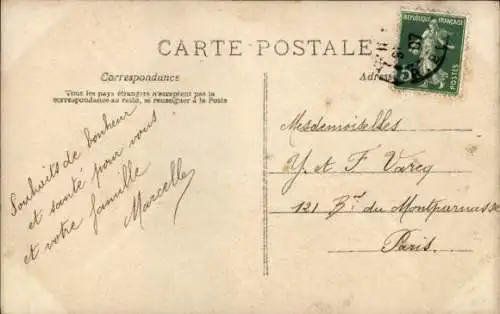 CARTE POSTALE
Correspondance
Tous les pays étrangers n'acceptent pas la
correspondance au recto, se renseigner à la Poste
Souhaits de bonheur
et santé pour vous
et votre famille
Marcelle
REPUBLIQUE FRANÇAISE
POSTES
07
Adres
Mesdemoiselles
Y. et F. Vareq
121 Bd du Montparnasse
Paris.